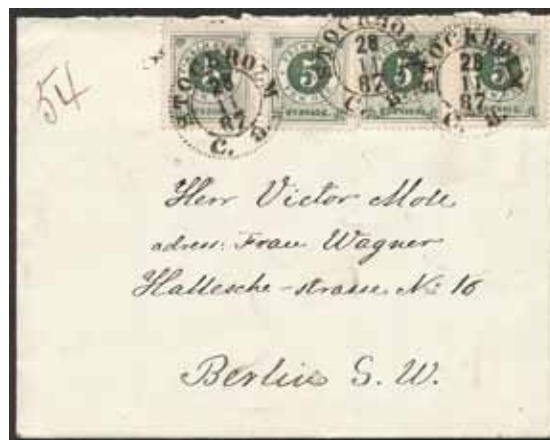 54
5 5 5 5
STOCKHOLM
28
11
87
C. B.
STOCKHOLM
28
11
87
STOCKHOLM
28
11
87
C. B.
Herr Victor Moll
adress: Frau Wagner
Hallesche-strasse No 16
Berlin S. W.